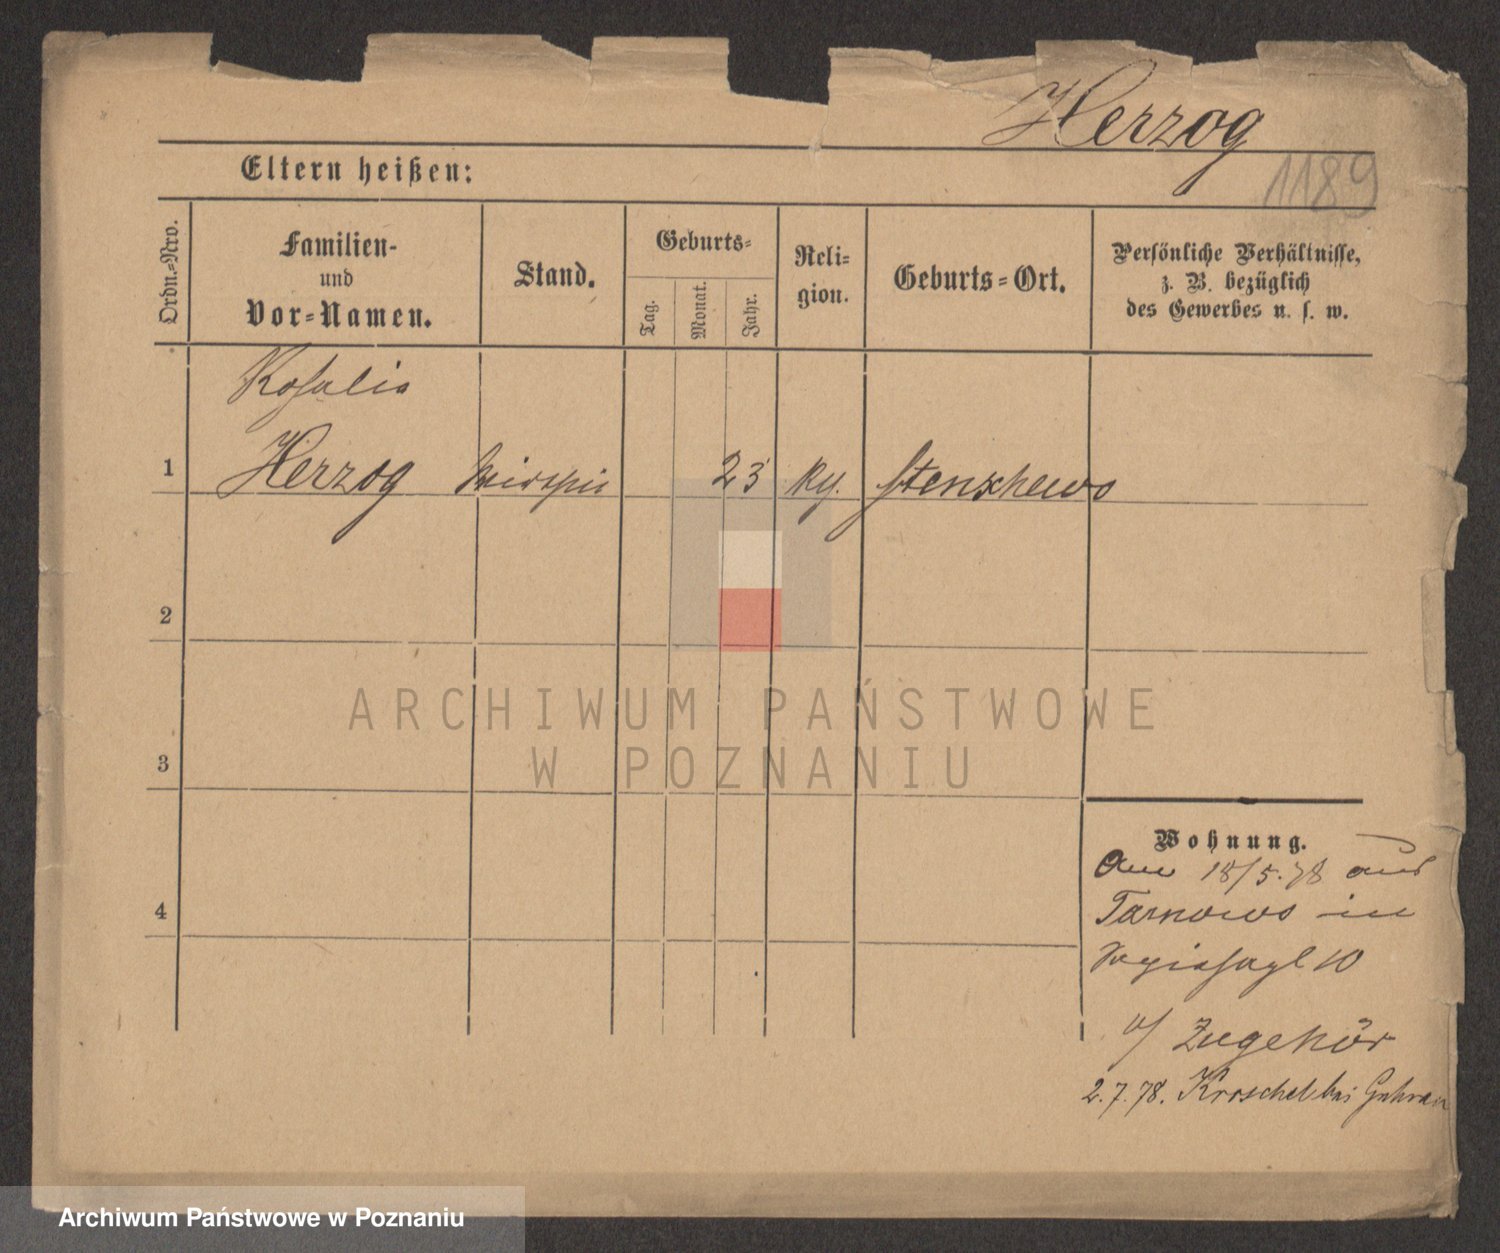 Herzog
1189
Eltern heißen:
Ordn.=Nro.
Familien-
und
Vor=Namen.
Stand.
Geburts=
Tag.
Monat.
Jahr.
Reli=
gion.
Geburts=Ort.
Persönliche Verhältnisse,
z. B. bezüglich
des Gewerbes u. s. w.
Rosalie
1 Herzog 23 Stenschewo
2
ARCHIWUM PAŃSTWOWE
W POZNANIU
3
4
Wohnung.
Am 18/5.78 aus
Tarnowo in
10
v/ Zugehör
2.7.78. Kroschel bei Guhrau
Archiwum Państwowe w Poznaniu